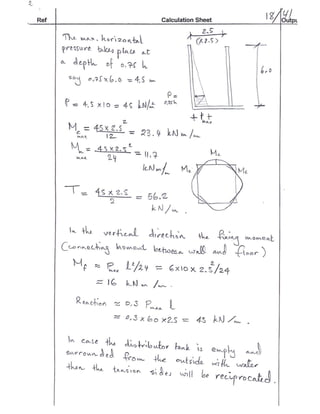 2
Ref
Calculation Sheet
18/14/
Output
The max. horizontal
pressure takes place at
a depth of 0.75 h
say 0.75 x 6.0 = 4.5 m
P = 4.5 x 10 = 45 kN/m²
2.5
(x 2.5)
6.0
P=
0.75h
+ t t
max
Mc max = 45 x 2.5² / 12 = 23.4 kN m/m
Mh max = 45 x 2.5² / 24 = 11.7
kNm/m
Mc
Mc
Mc
T = 45 x 2.5 / 2 = 56.2
kN/m
In the vertical direction the fixing moment
(connecting moment between wall and floor)
Mf = Pmax L²/24 = 6x10 x 2.5²/24
= 16 kN m/m.
Reaction = 0.3 Pmax L
= 0.3 x 60 x 2.5 = 45 kN/m.
In case the distributor tank is empty and
surrounded from the outside with water
then the tension sides will be reciprocated.